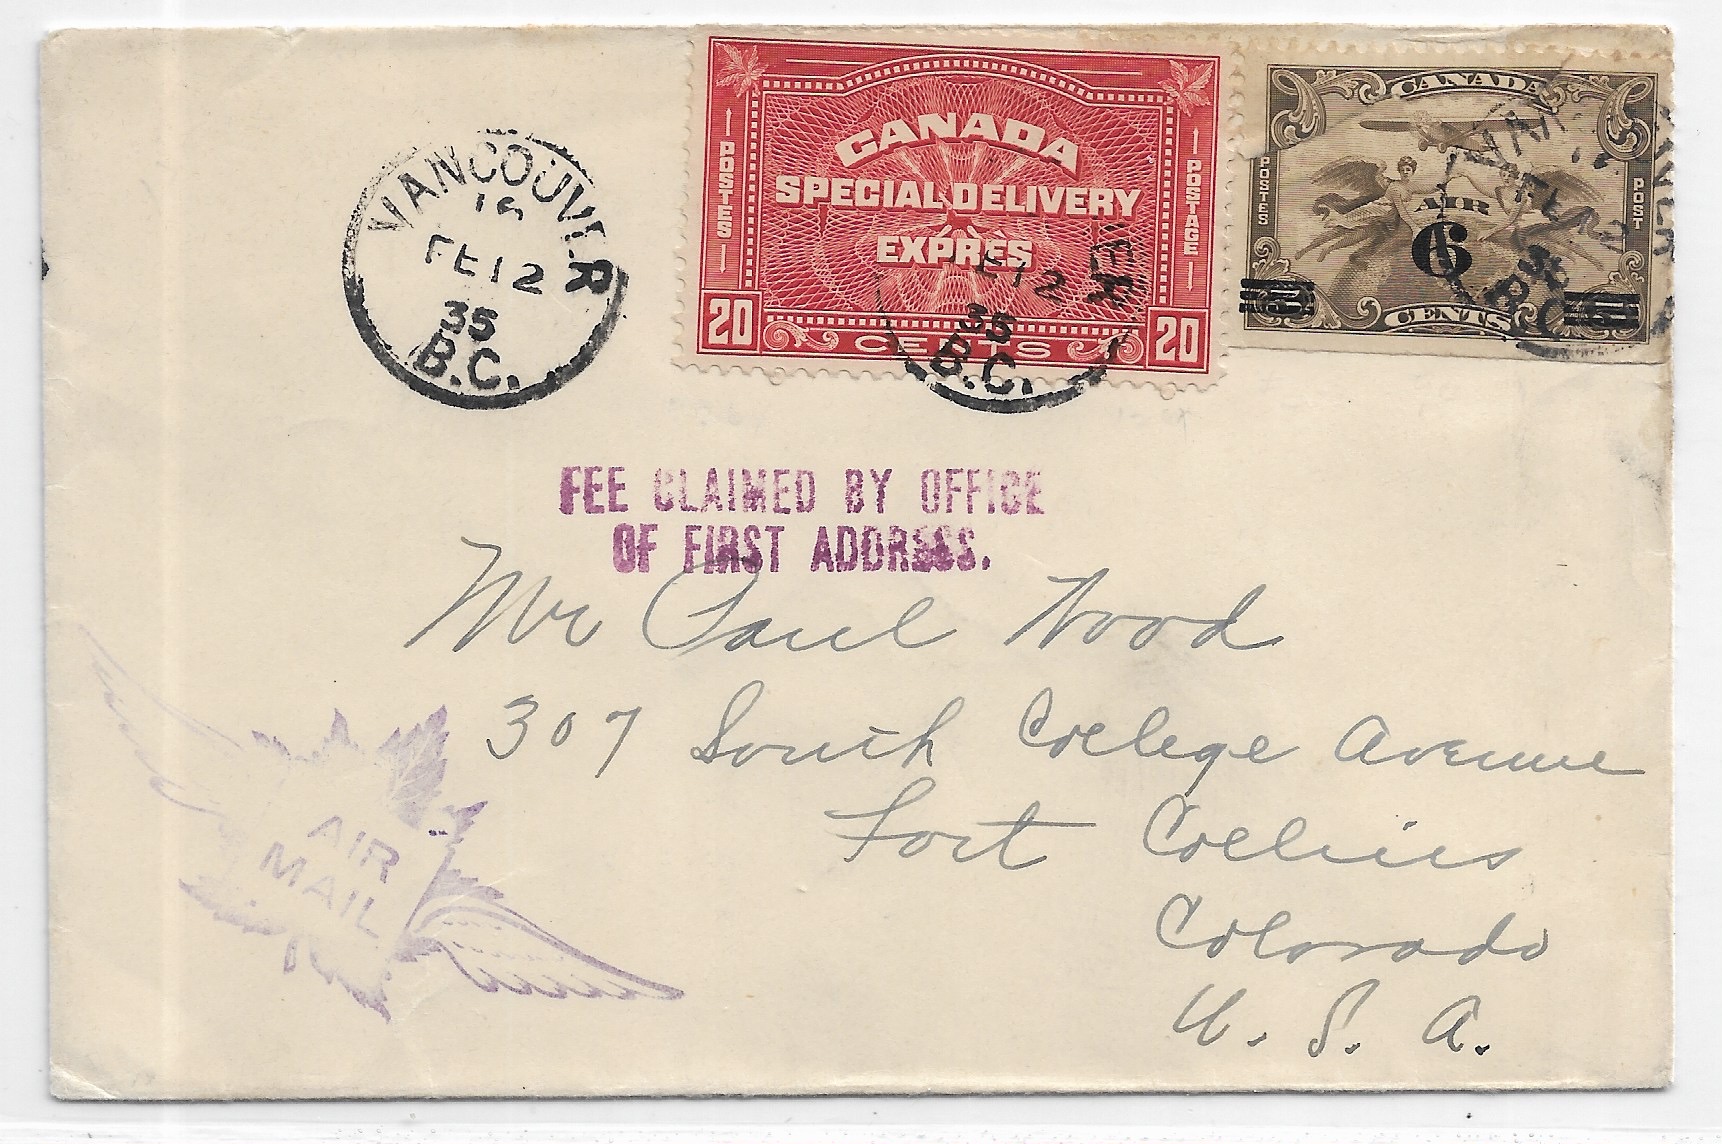 VANCOUVER
FE 12
35
B.C.
CANADA
SPECIAL DELIVERY
EXPRÈS
POSTES
POSTAGE
20 CENTS 20
E 12
35
B.C.
CANADA
POSTES
POST
AIR
6
CENTS
FE 12
35
B.C.
FEE CLAIMED BY OFFICE
OF FIRST ADDRESS.
Mr Paul Wood
307 South College Avenue
Fort Collins
Colorado
U. S. A.
AIR
MAIL